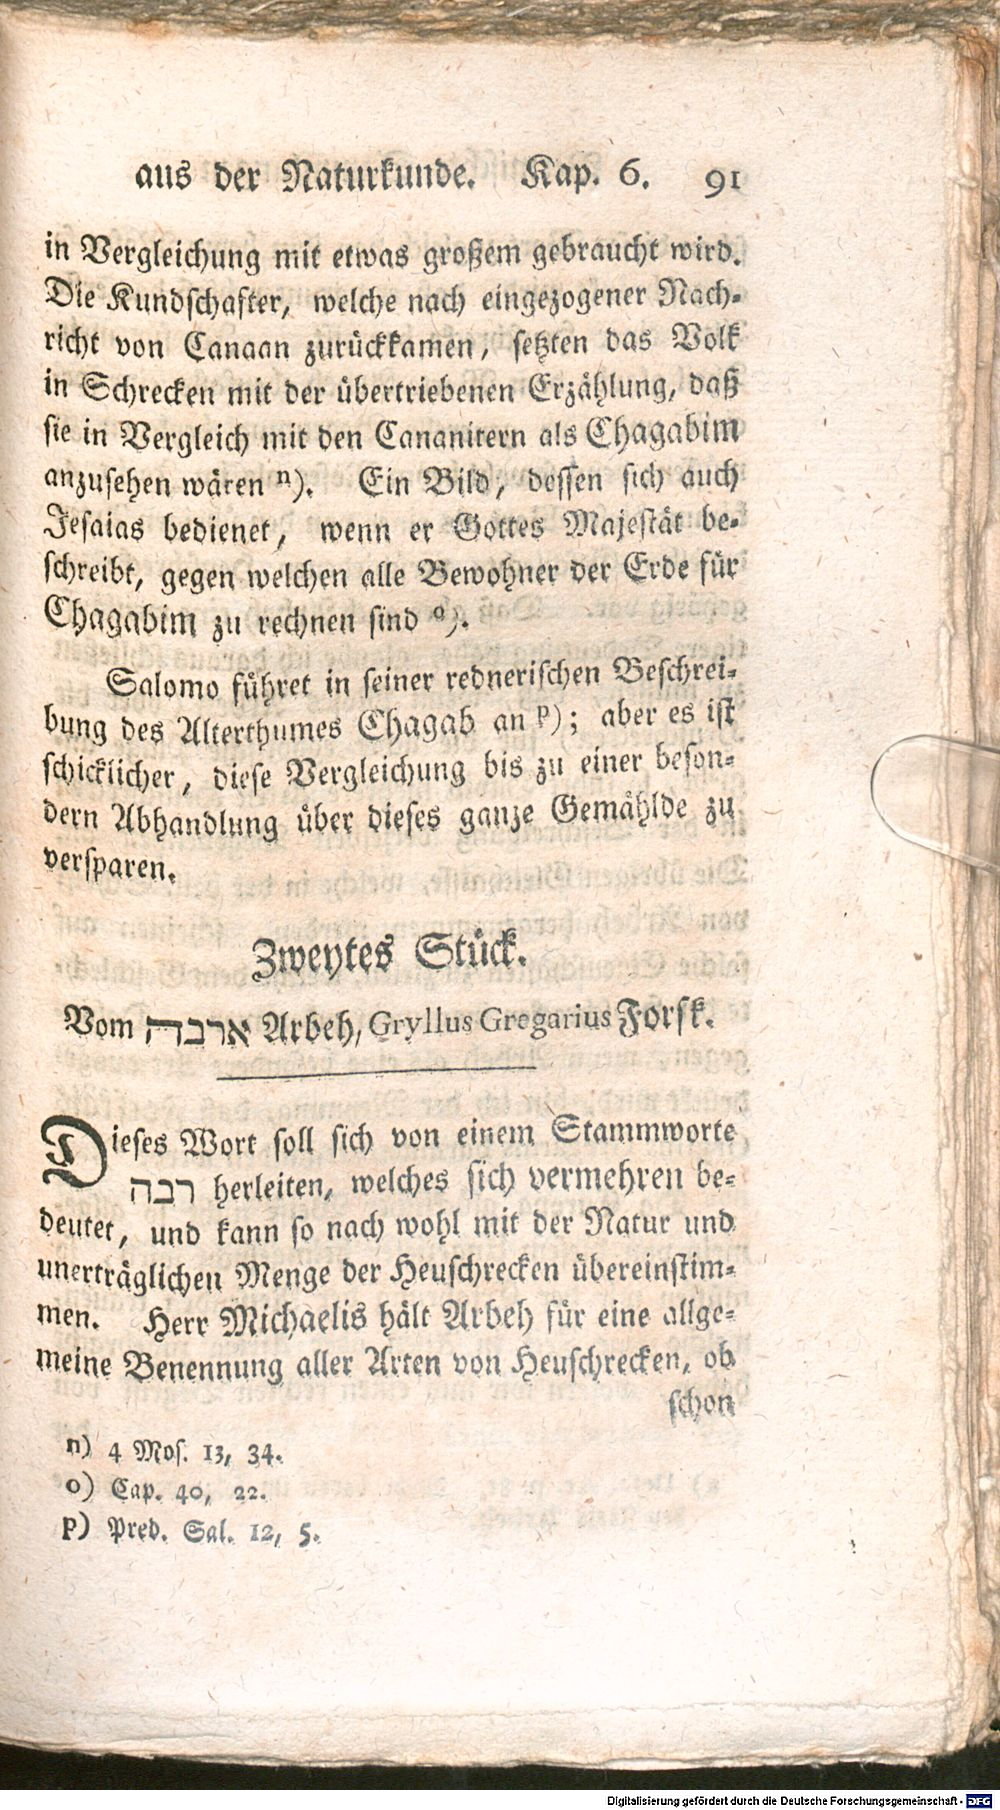 aus der Naturkunde. Kap. 6. 91
in Vergleichung mit etwas großem gebraucht wird.
Die Kundschafter, welche nach eingezogener Nach-
richt von Canaan zurückkamen, setzten das Volk
in Schrecken mit der übertriebenen Erzählung, daß
sie in Vergleich mit den Cananitern als Chagabim
anzusehen wären n). Ein Bild, dessen sich auch
Jesaias bedienet, wenn er Gottes Majestät be-
schreibt, gegen welchen alle Bewohner der Erde für
Chagabim zu rechnen sind o).
Salomo führet in seiner rednerischen Beschrei-
bung des Alterthumes Chagab an p); aber es ist
schicklicher, diese Vergleichung bis zu einer beson-
dern Abhandlung über dieses ganze Gemählde zu
versparen.
Zweytes Stück.
Vom ארבה Arbeh, Gryllus Gregarius Forsk.
Dieses Wort soll sich von einem Stammworte
רבה herleiten, welches sich vermehren be-
deutet, und kann so nach wohl mit der Natur und
unerträglichen Menge der Heuschrecken übereinstim-
men. Herr Michaelis hält Arbeh für eine allge-
meine Benennung aller Arten von Heuschrecken, ob
schon
n) 4 Mos. 13, 34.
o) Cap. 40, 22.
p) Pred. Sal. 12, 5.
Digitalisierung gefördert durch die Deutsche Forschungsgemeinschaft - DFG